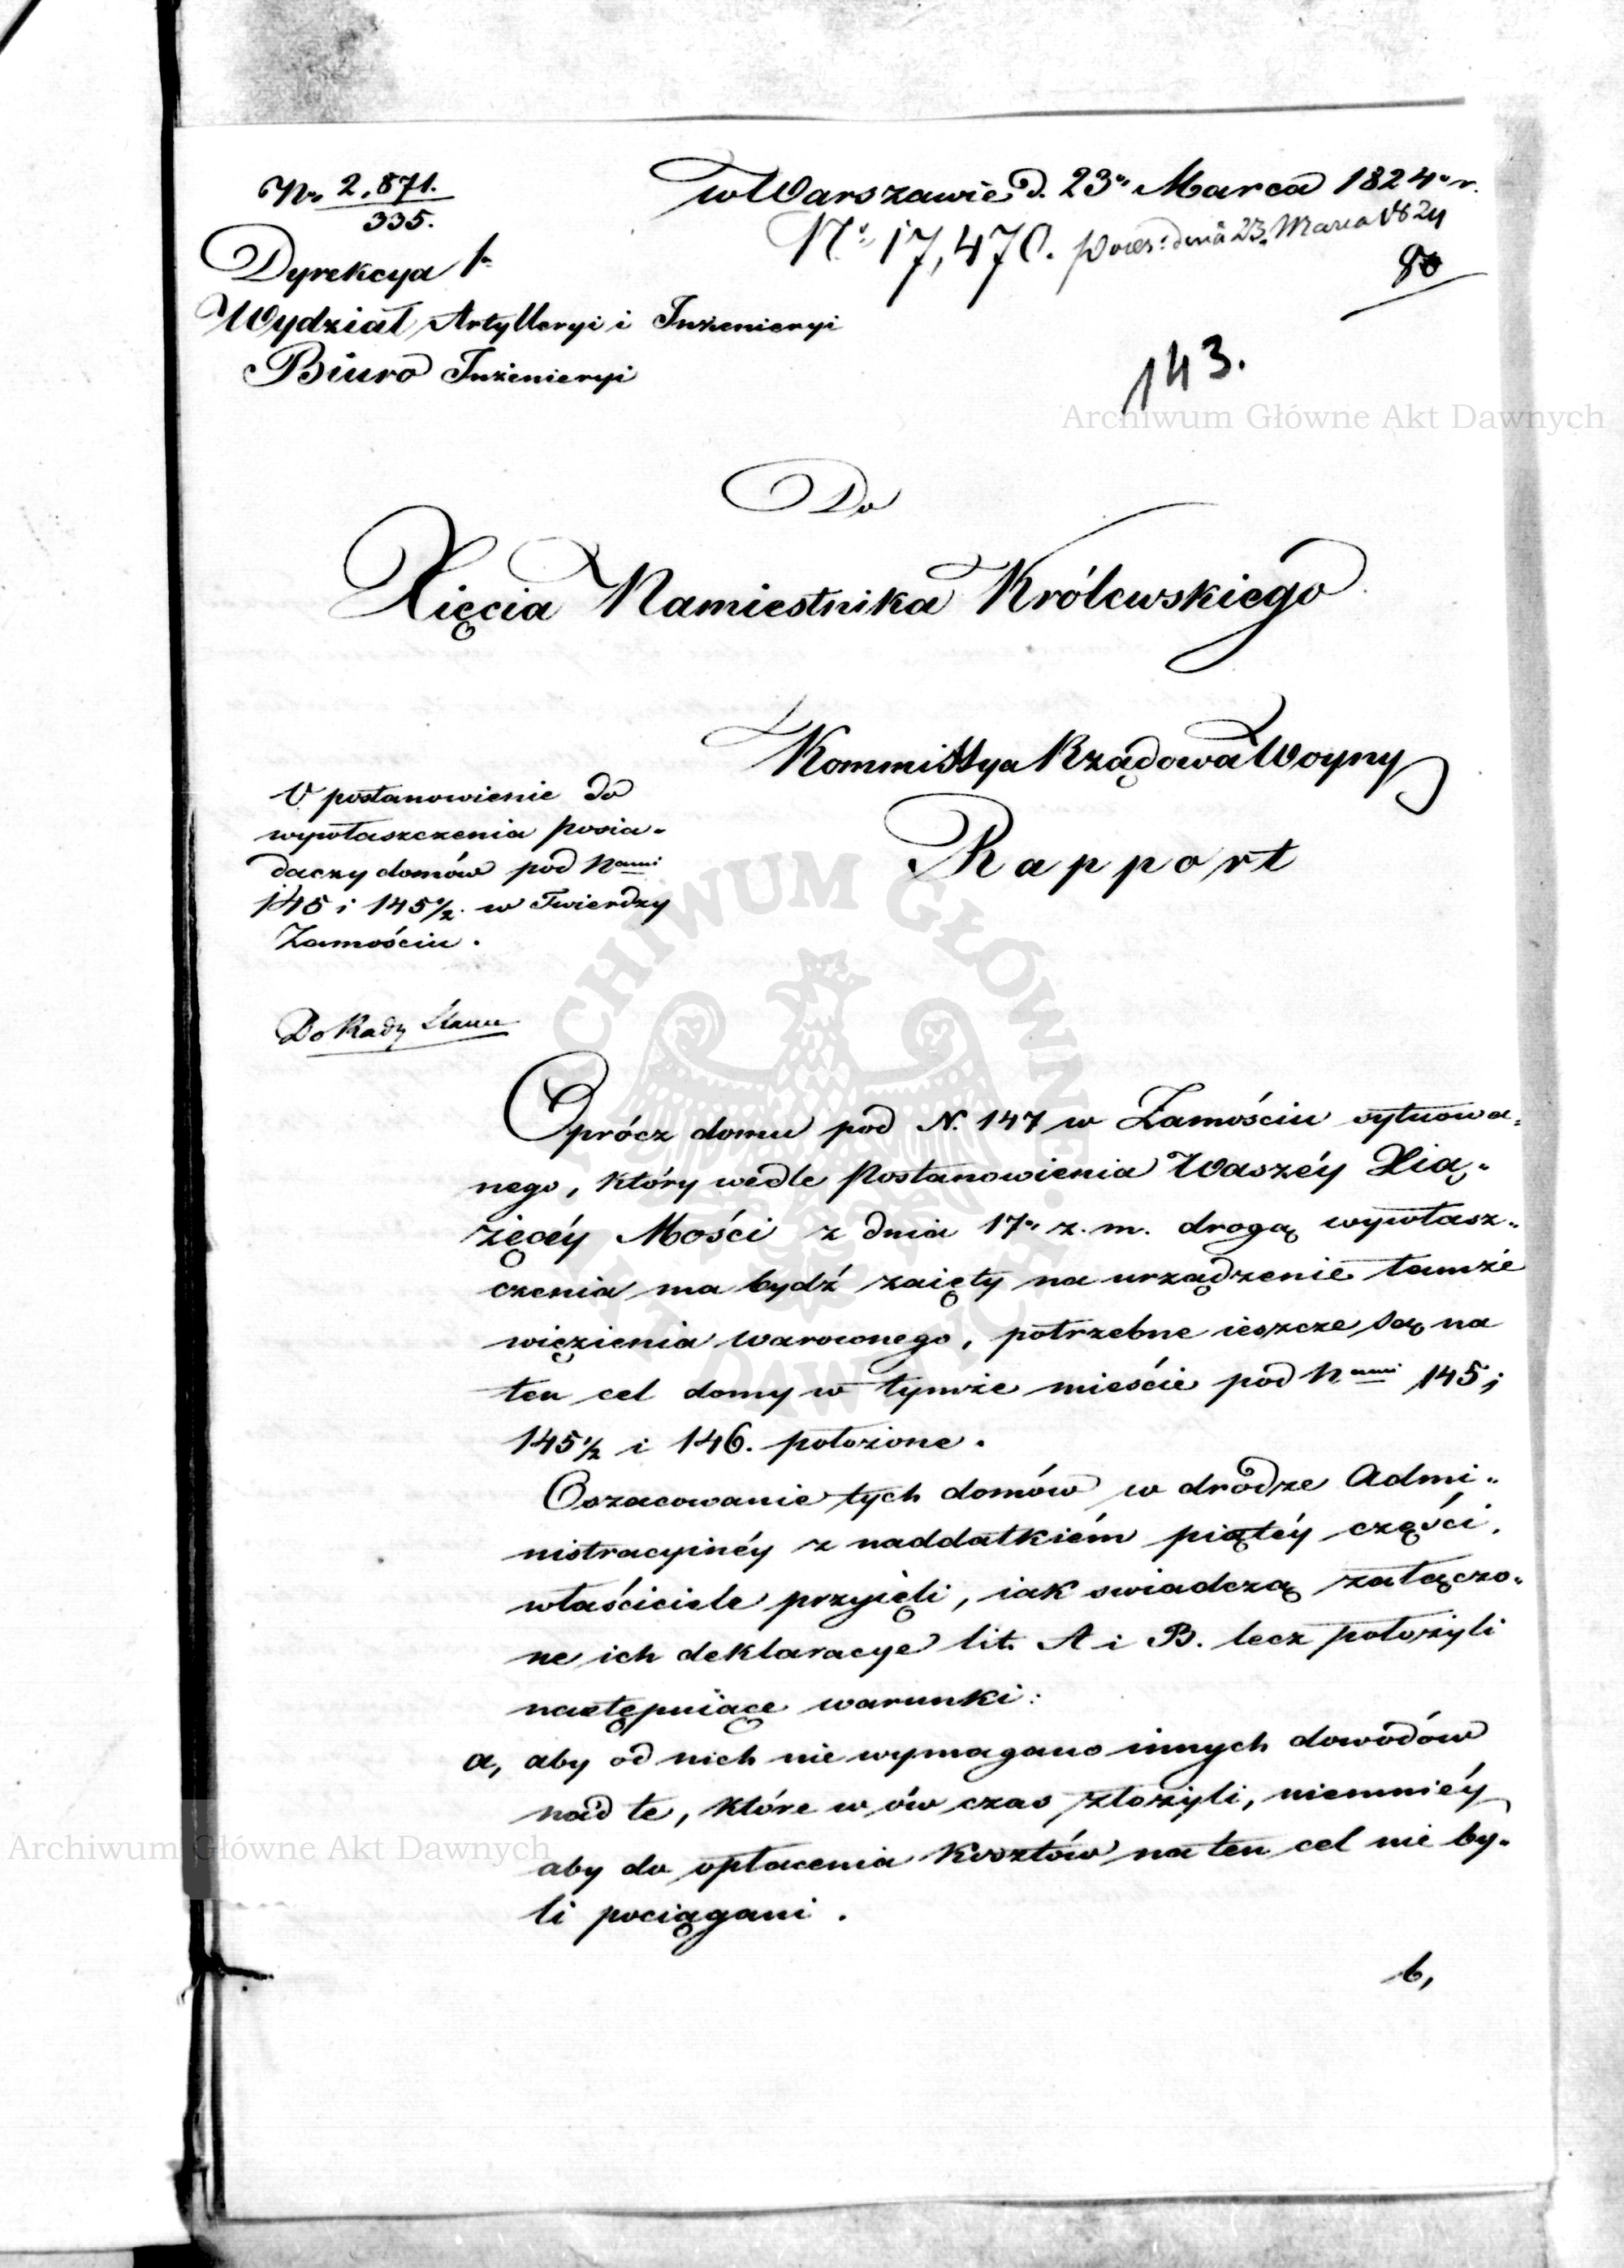 Nr. 2,871.
335.
w Warszawie d. 23o Marca 1824o r.
No 17,470. prez: dnia 23. Marca 1824
80
Dyrekcya 1a
Wydział Artylleryi i Inżenieryi
Biuro Inżenieryi
143.
Archiwum Główne Akt Dawnych
Do
Xięcia Namiestnika Królewskiego
Kommissya Rządowa Woyny
Rapport
O postanowienie do
wywłaszczenia posia-
daczy domów pod Nami
145 i 145 1/2. w Twierdzy
Zamościu.
Do Rady Stanu
Oprócz domu pod N. 147 w Zamościu sytuowa-
nego, który wedle Postanowienia Waszéy Xią-
żęcéy Mości z dnia 17o z. m. drogą wywłasz-
czenia ma bydź zaięty na urządzenie tamże
więzienia warownego, potrzebne ieszcze są na
ten cel domy w tymże mieście pod Nami 145,
145 1/2 i 146. położone.
Oszacowanie tych domów w drodze Admi-
nistracyinéy z naddatkiém piątéy części,
właściciele przyięli, iak swiadczą załączo-
ne ich deklaracye lit. A i B. lecz położyli
następuiące warunki:
a, aby od nich nie wymagano innych dowodów
nad te, które w ów czas złożyli, niemniéy
aby do opłacenia kosztów na ten cel nie by-
li pociągani.
b,
ARCHIWUM GŁÓWNE AKT DAWNYCH
Archiwum Główne Akt Dawnych